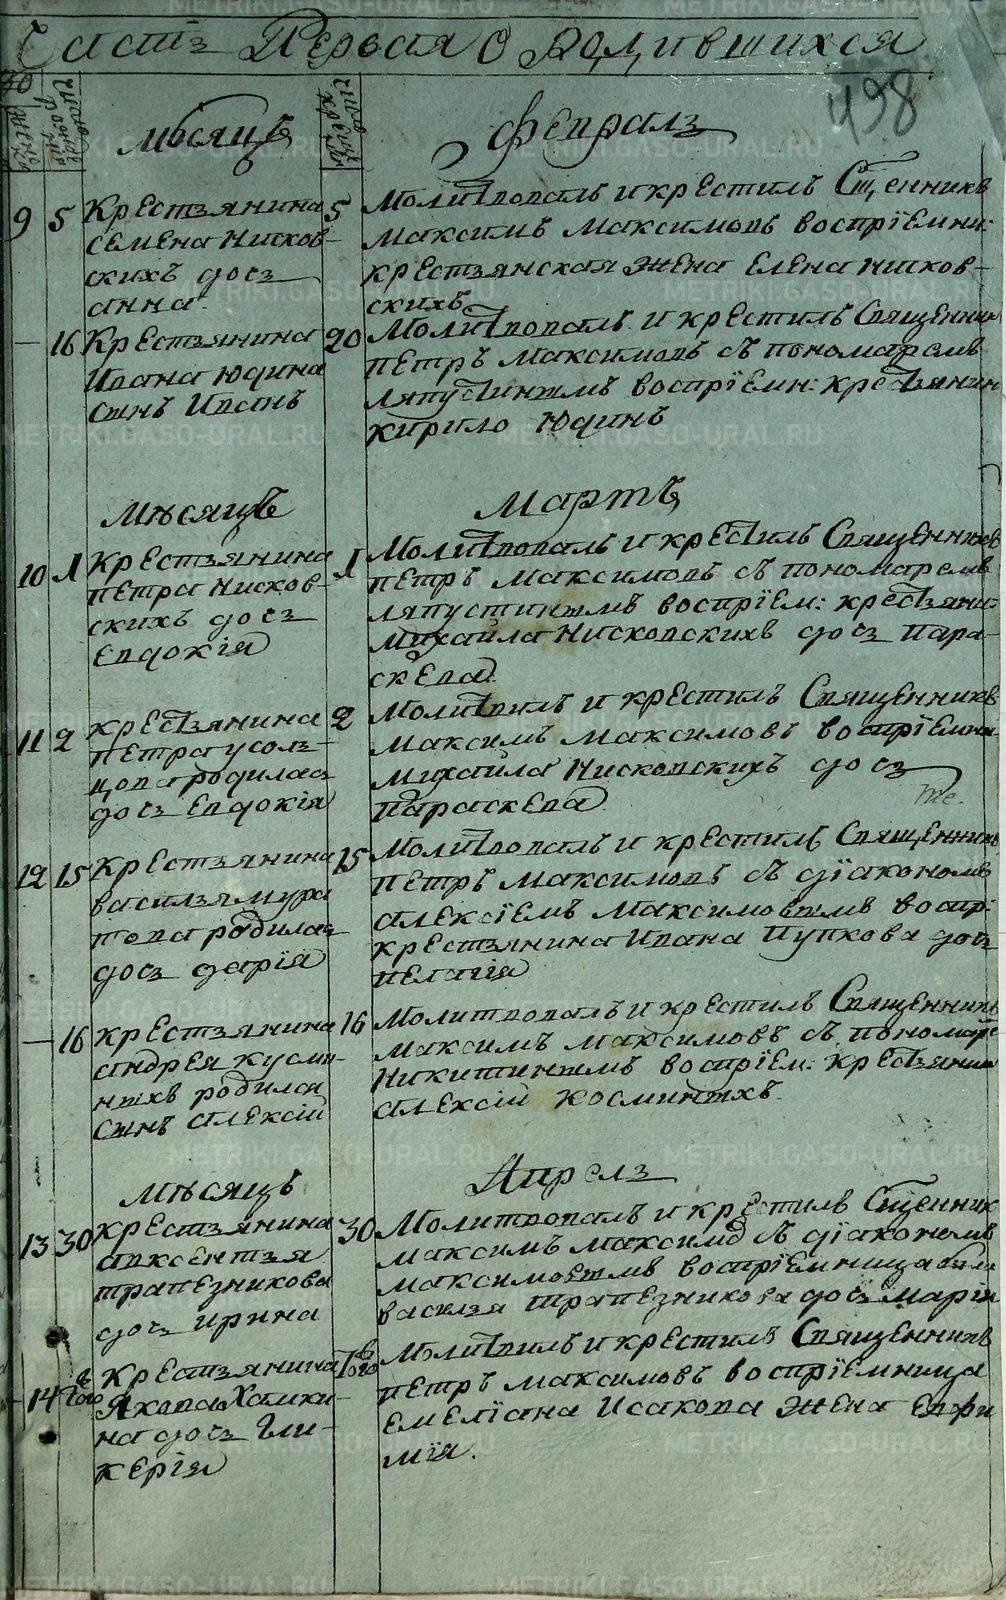 Часть Первая о родившихся
498
мѣсяцъ
февраль
9 5 Крестьянина
Семена Нисков-
скихъ дочь
анна
5 Молитвовалъ и крестилъ Сщенникъ
Максимъ Максимовъ воспрїемни:
крестьянская жена Елена Нисков-
скихъ
16 Крестьянина
Ивана Юдина
сынъ Иванъ
20 Молитвовалъ и крестилъ Священник
петръ Максимовъ съ пономаремъ
Ляпустинымъ воспрїемн: крестьянин
кирило Юдинъ
Мѣсяцъ
Мартъ
10 1 Крестьянина
петра Нисков-
скихъ дочь
Евдокїя
1 Молитвовалъ и крестилъ Священникъ
петръ Максимовъ съ пономаремъ
Ляпустинымъ воспрїем: крестьяни:
михайла Нисковскихъ дочь Пара-
скева
11 2 крестьянина
петра усоль-
цова родилась
дочь Евдокїя
2 Молитвилъ и крестилъ Священникъ
Максимъ Максимовъ воспрїемни
михайла Нисковскихъ дочь
Параскева
те.
12 15 Крестьянина
василья мура
това родилась
дочь дарїя
15 Молитвовалъ и крестилъ Священникъ
петръ Максимовъ съ дїакономъ
алексїемъ Максимовымъ воспр:
крестьянина Ивана Пупкова дочь
пелагїя
16 Крестьянина
андрея кусми-
ныхъ родился
сынъ алексїй
16 Молитвовалъ и крестилъ Священникъ
Максимъ Максимовъ съ пономаре
Никитинымъ воспрїем: крестьянин
алексїй косминыхъ
Мѣсяцъ
Апрель
13 30 Крестьянина
авксентья
трапезникова
дочь ирина
30 Молитвовалъ и крестилъ Сщенник
максимъ максимо съ дїакономъ
максимовымъ воспрїемница была
василья трапезникова дочь марїя
14 8 того Крестьянина
Якова Хамки-
на дочь Гли-
керїя
8 того Молитвилъ и крестилъ Священникъ
петръ максимовъ воспрїемница
Емелїана Исакова жена Евфи
мїя.